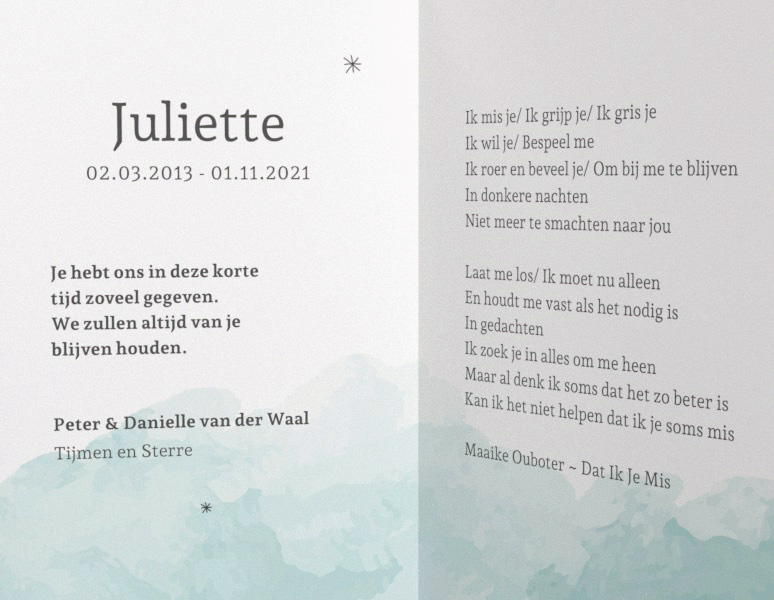 Juliette
02.03.2013 - 01.11.2021
Je hebt ons in deze korte
tijd zoveel gegeven.
We zullen altijd van je
blijven houden.
Peter & Danielle van der Waal
Tijmen en Sterre
Ik mis je/ Ik grijp je/ Ik gris je
Ik wil je/ Bespeel me
Ik roer en beveel je/ Om bij me te blijven
In donkere nachten
Niet meer te smachten naar jou
Laat me los/ Ik moet nu alleen
En houdt me vast als het nodig is
In gedachten
Ik zoek je in alles om me heen
Maar al denk ik soms dat het zo beter is
Kan ik het niet helpen dat ik je soms mis
Maaike Ouboter ~ Dat Ik Je Mis